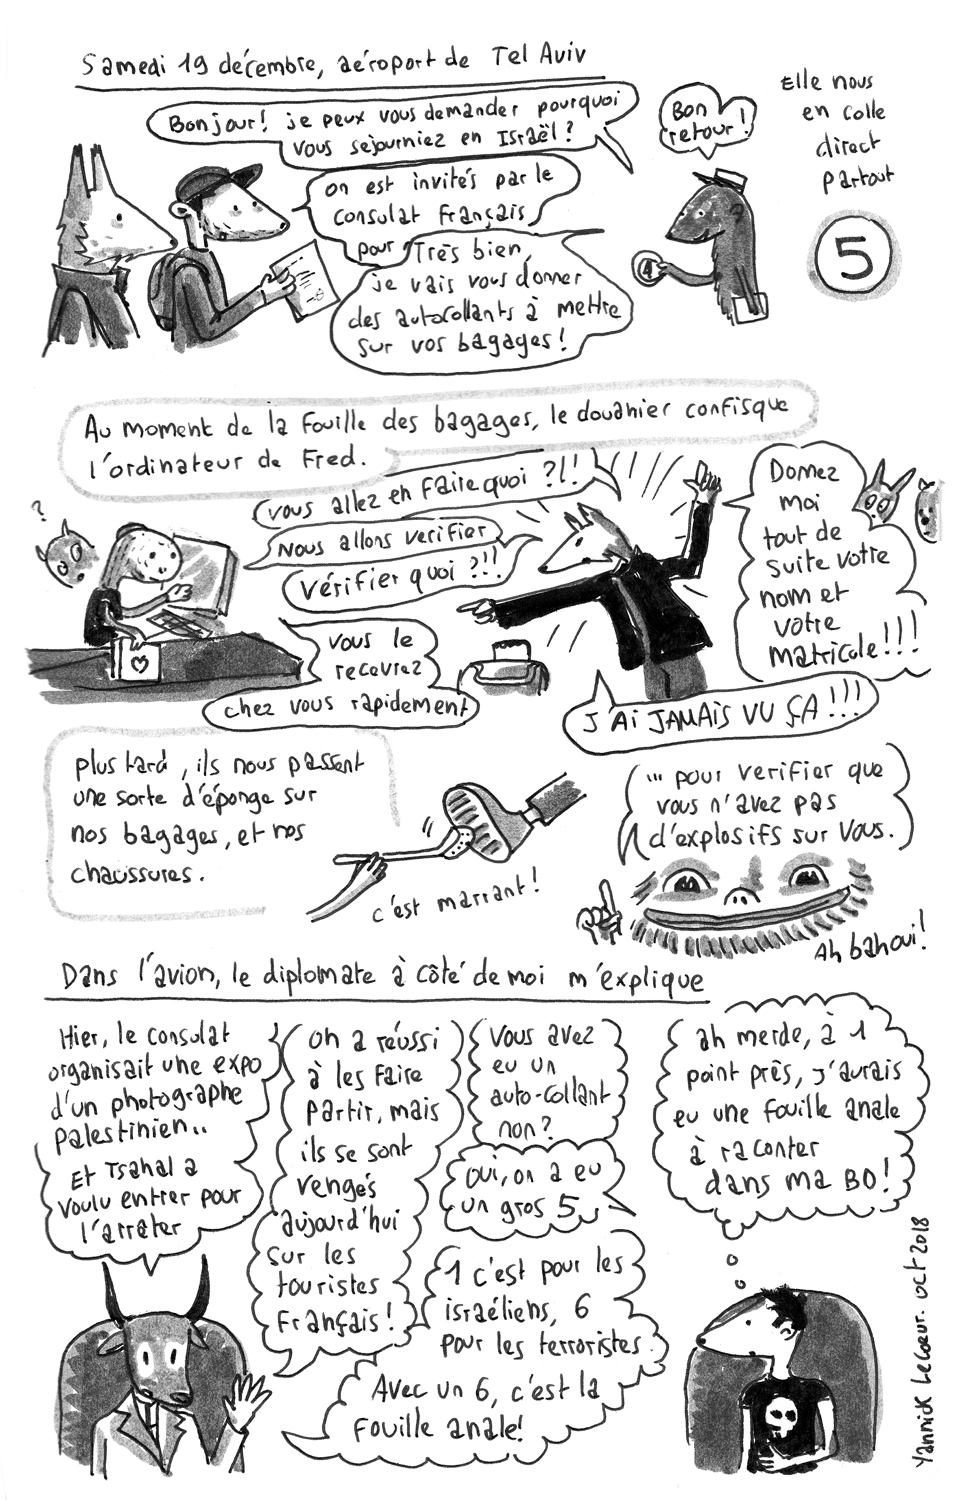 Samedi 19 décembre, aéroport de Tel Aviv
Bonjour! je peux vous demander pourquoi
vous sejourniez en Israël?
on est invités par le
consulat français
pour
Très bien,
je vais vous donner
des autocollants à mettre
sur vos bagages!
Bon
retour!
4
Elle nous
en colle
direct
partout
5
Au moment de la fouille des bagages, le douanier confisque
l'ordinateur de Fred.
?
vous allez en faire quoi ?!!
Nous allons verifier
Vérifier quoi ?!!
vous le
recevrez
chez vous rapidement
Donnez
moi
tout de
suite votre
nom et
votre
matricule!!!
J'AI JAMAIS VU ÇA!!!
Plus tard, ils nous passent
une sorte d'éponge sur
nos bagages, et nos
chaussures.
c'est marrant!
... pour verifier que
vous n'avez pas
d'explosifs sur vous.
Ah bah oui!
Dans l'avion, le diplomate à côté de moi m'explique
Hier, le consulat
organisait une expo
d'un photographe
palestinien..
Et Tsahal a
voulu entrer pour
l'arrâter
on a réussi
à les faire
partir, mais
ils se sont
vengés
aujourd'hui
sur les
touristes
français!
Vous avez
eu un
auto-collant
non?
Oui, on a eu
un gros 5
1 c'est pour les
israéliens, 6
pour les terroristes.
Avec un 6, c'est la
fouille anale!
ah merde, à 1
point près, j'aurais
eu une fouille anale
à raconter
dans ma BD!
Yannick Lecœur. oct 2018